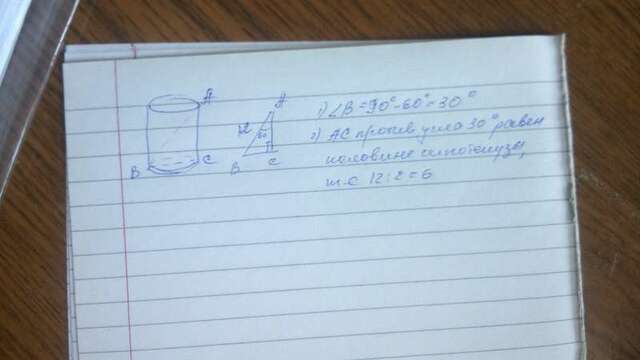 A
B
C
A
12
60°
B
C
1) ∠B = 90° - 60° = 30°
2) AC против угла 30° равен
половине гипотенузы,
т.е 12 : 2 = 6